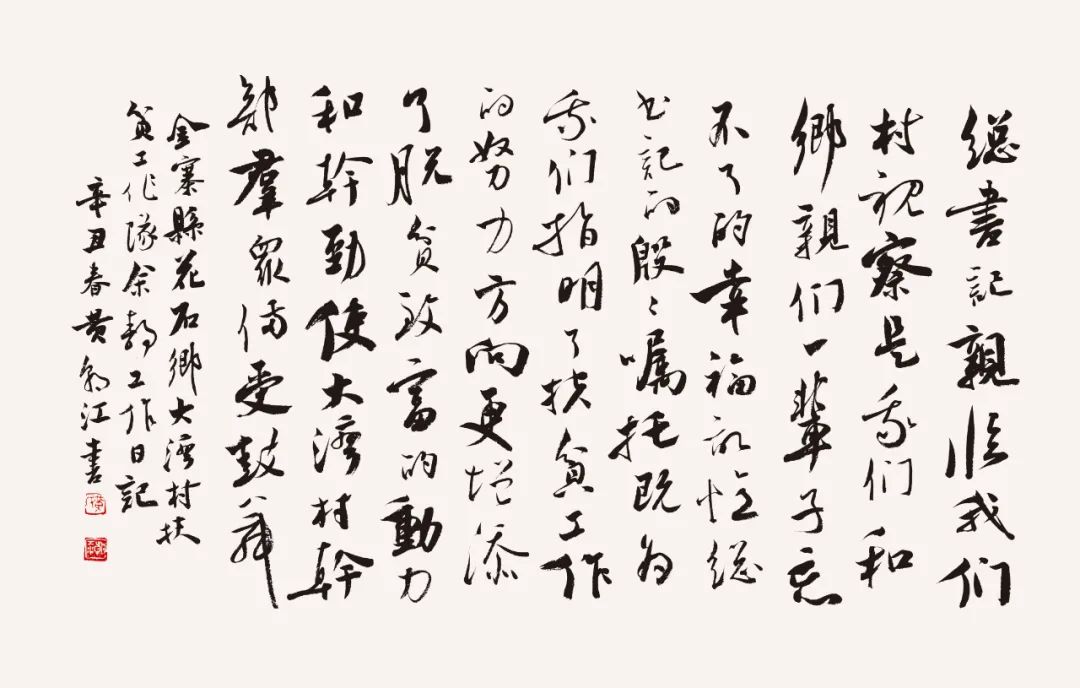 総書記親临我们
村視察是我们和
鄉親们一輩子忘
不了的幸福記憶総
书記的殷〻嘱托既为
我们指明了扶贫工作
的努力方向更增添
了脱贫致富的動力
和幹勁使大湾村幹
部羣眾倍受鼓舞
金寨縣花石鄉大湾村扶
贫工作隊余静工作日記
辛丑春黄江書